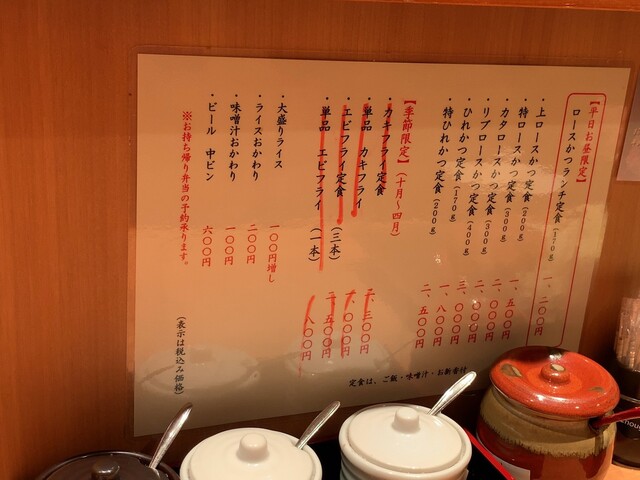 【平日お昼限定】
ロースかつランチ定食(170g) 一、二〇〇円
・上ロースかつ定食(200g) 一、五〇〇円
・特ロースかつ定食(300g) 二、〇〇〇円
・カタロースかつ定食(300g) 二、〇〇〇円
・リブロースかつ定食(400g) 三、〇〇〇円
・ひれかつ定食(170g) 一、八〇〇円
・特ひれかつ定食(200g) 二、五〇〇円
【季節限定】(十月〜四月)
・カキフライ定食 二、三〇〇円
・単品 カキフライ 〇〇〇円
・エビフライ定食(三本) 二、五〇〇円
・単品 エビフライ(一本) 八〇〇円
・大盛りライス 一〇〇円増し
・ライスおかわり 二〇〇円
・味噌汁おかわり 一〇〇円
・ビール 中ビン 六〇〇円
※お持ち帰り弁当の予約承ります。
(表示は税込み価格)
定食は、ご飯・味噌汁・お新香付